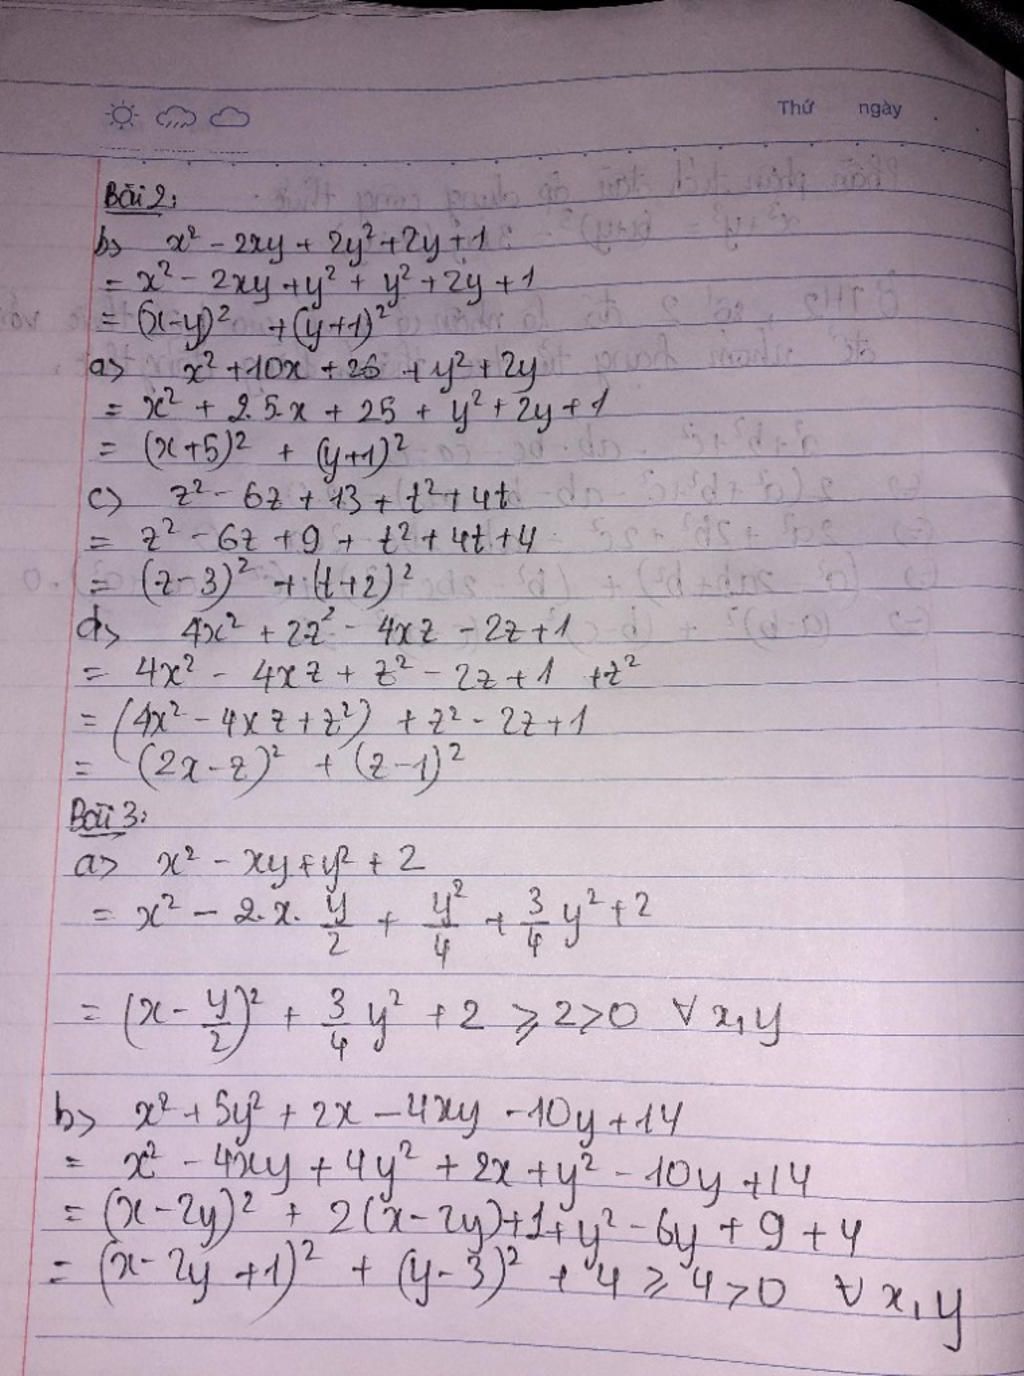 Thứ ngày
Bài 2:
b> x² - 2xy + 2y² + 2y + 1
= x² - 2xy + y² + y² + 2y + 1
= (x-y)² + (y+1)²
a> x² + 10x + 26 + y² + 2y
= x² + 2.5.x + 25 + y² + 2y + 1
= (x+5)² + (y+1)²
c> z² - 6z + 13 + t² + 4t
= z² - 6z + 9 + t² + 4t + 4
= (z-3)² + (t+2)²
d> 4x² + 2z² - 4xz - 2z + 1
= 4x² - 4xz + z² - 2z + 1 + z²
= (4x² - 4xz + z²) + z² - 2z + 1
= (2x-z)² + (z-1)²
Bài 3:
a> x² - xy + y² + 2
= x² - 2.x. y/2 + y²/4 + 3/4 y² + 2
= (x - y/2)² + 3/4 y² + 2 ⩾ 2 > 0 ∀ x, y
b> x² + 5y² + 2x - 4xy - 10y + 14
= x² - 4xy + 4y² + 2x + y² - 10y + 14
= (x-2y)² + 2(x-2y) + 1 + y² - 6y + 9 + 4
= (x-2y+1)² + (y-3)² + 4 ⩾ 4 > 0 ∀ x, y